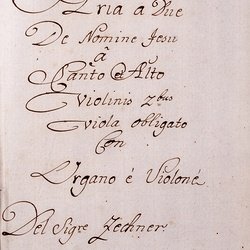 Aria a Due
De Nomine Jesu
â
Canto è Alto
Violinis 2bus
Viola obligato
Con
Organo è Violone
Del Sigre Zechner